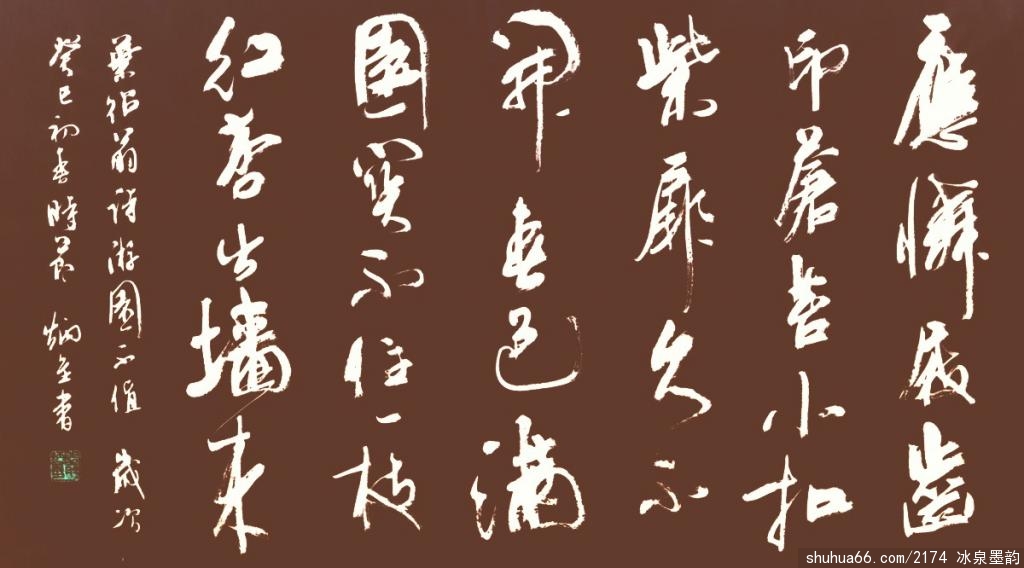 應憐屐齒
印蒼苔小扣
柴扉久不
開春色滿
園關不住一枝
紅杏出墙來
葉紹翁詩游園不值 歲次
癸巳初春時節 炳書
shuhua66.com/2174 冰泉墨韵